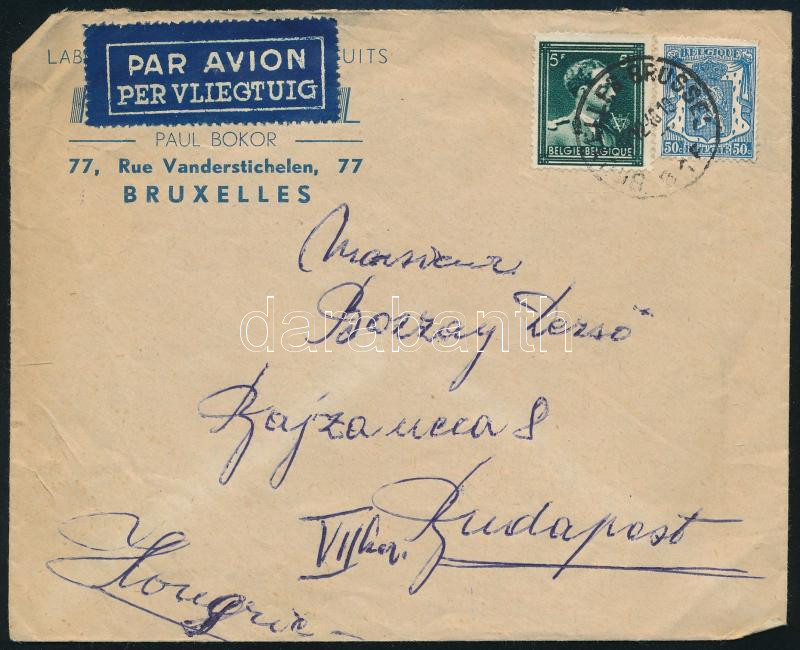 LAB UITS
PAR AVION
PER VLIEGTUIG
PAUL BOKOR
77, Rue Vanderstichelen, 77
BRUXELLES
5F
BELGIE-BELGIQUE
BELGIQUE
50c 50c
Monsieur
Borzay Dezső
Bajza ucca 8
VII ker. Budapest
Hongrie
darabanth